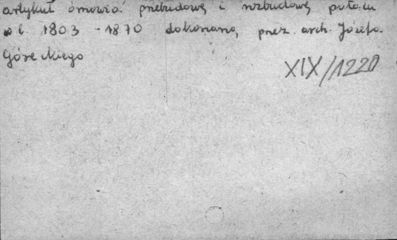 artykuł omawia przebudowę i rozbudowę pałacu
w l. 1803 - 1870 dokonaną przez arch. Józefa
Góreckiego
XIX/1220